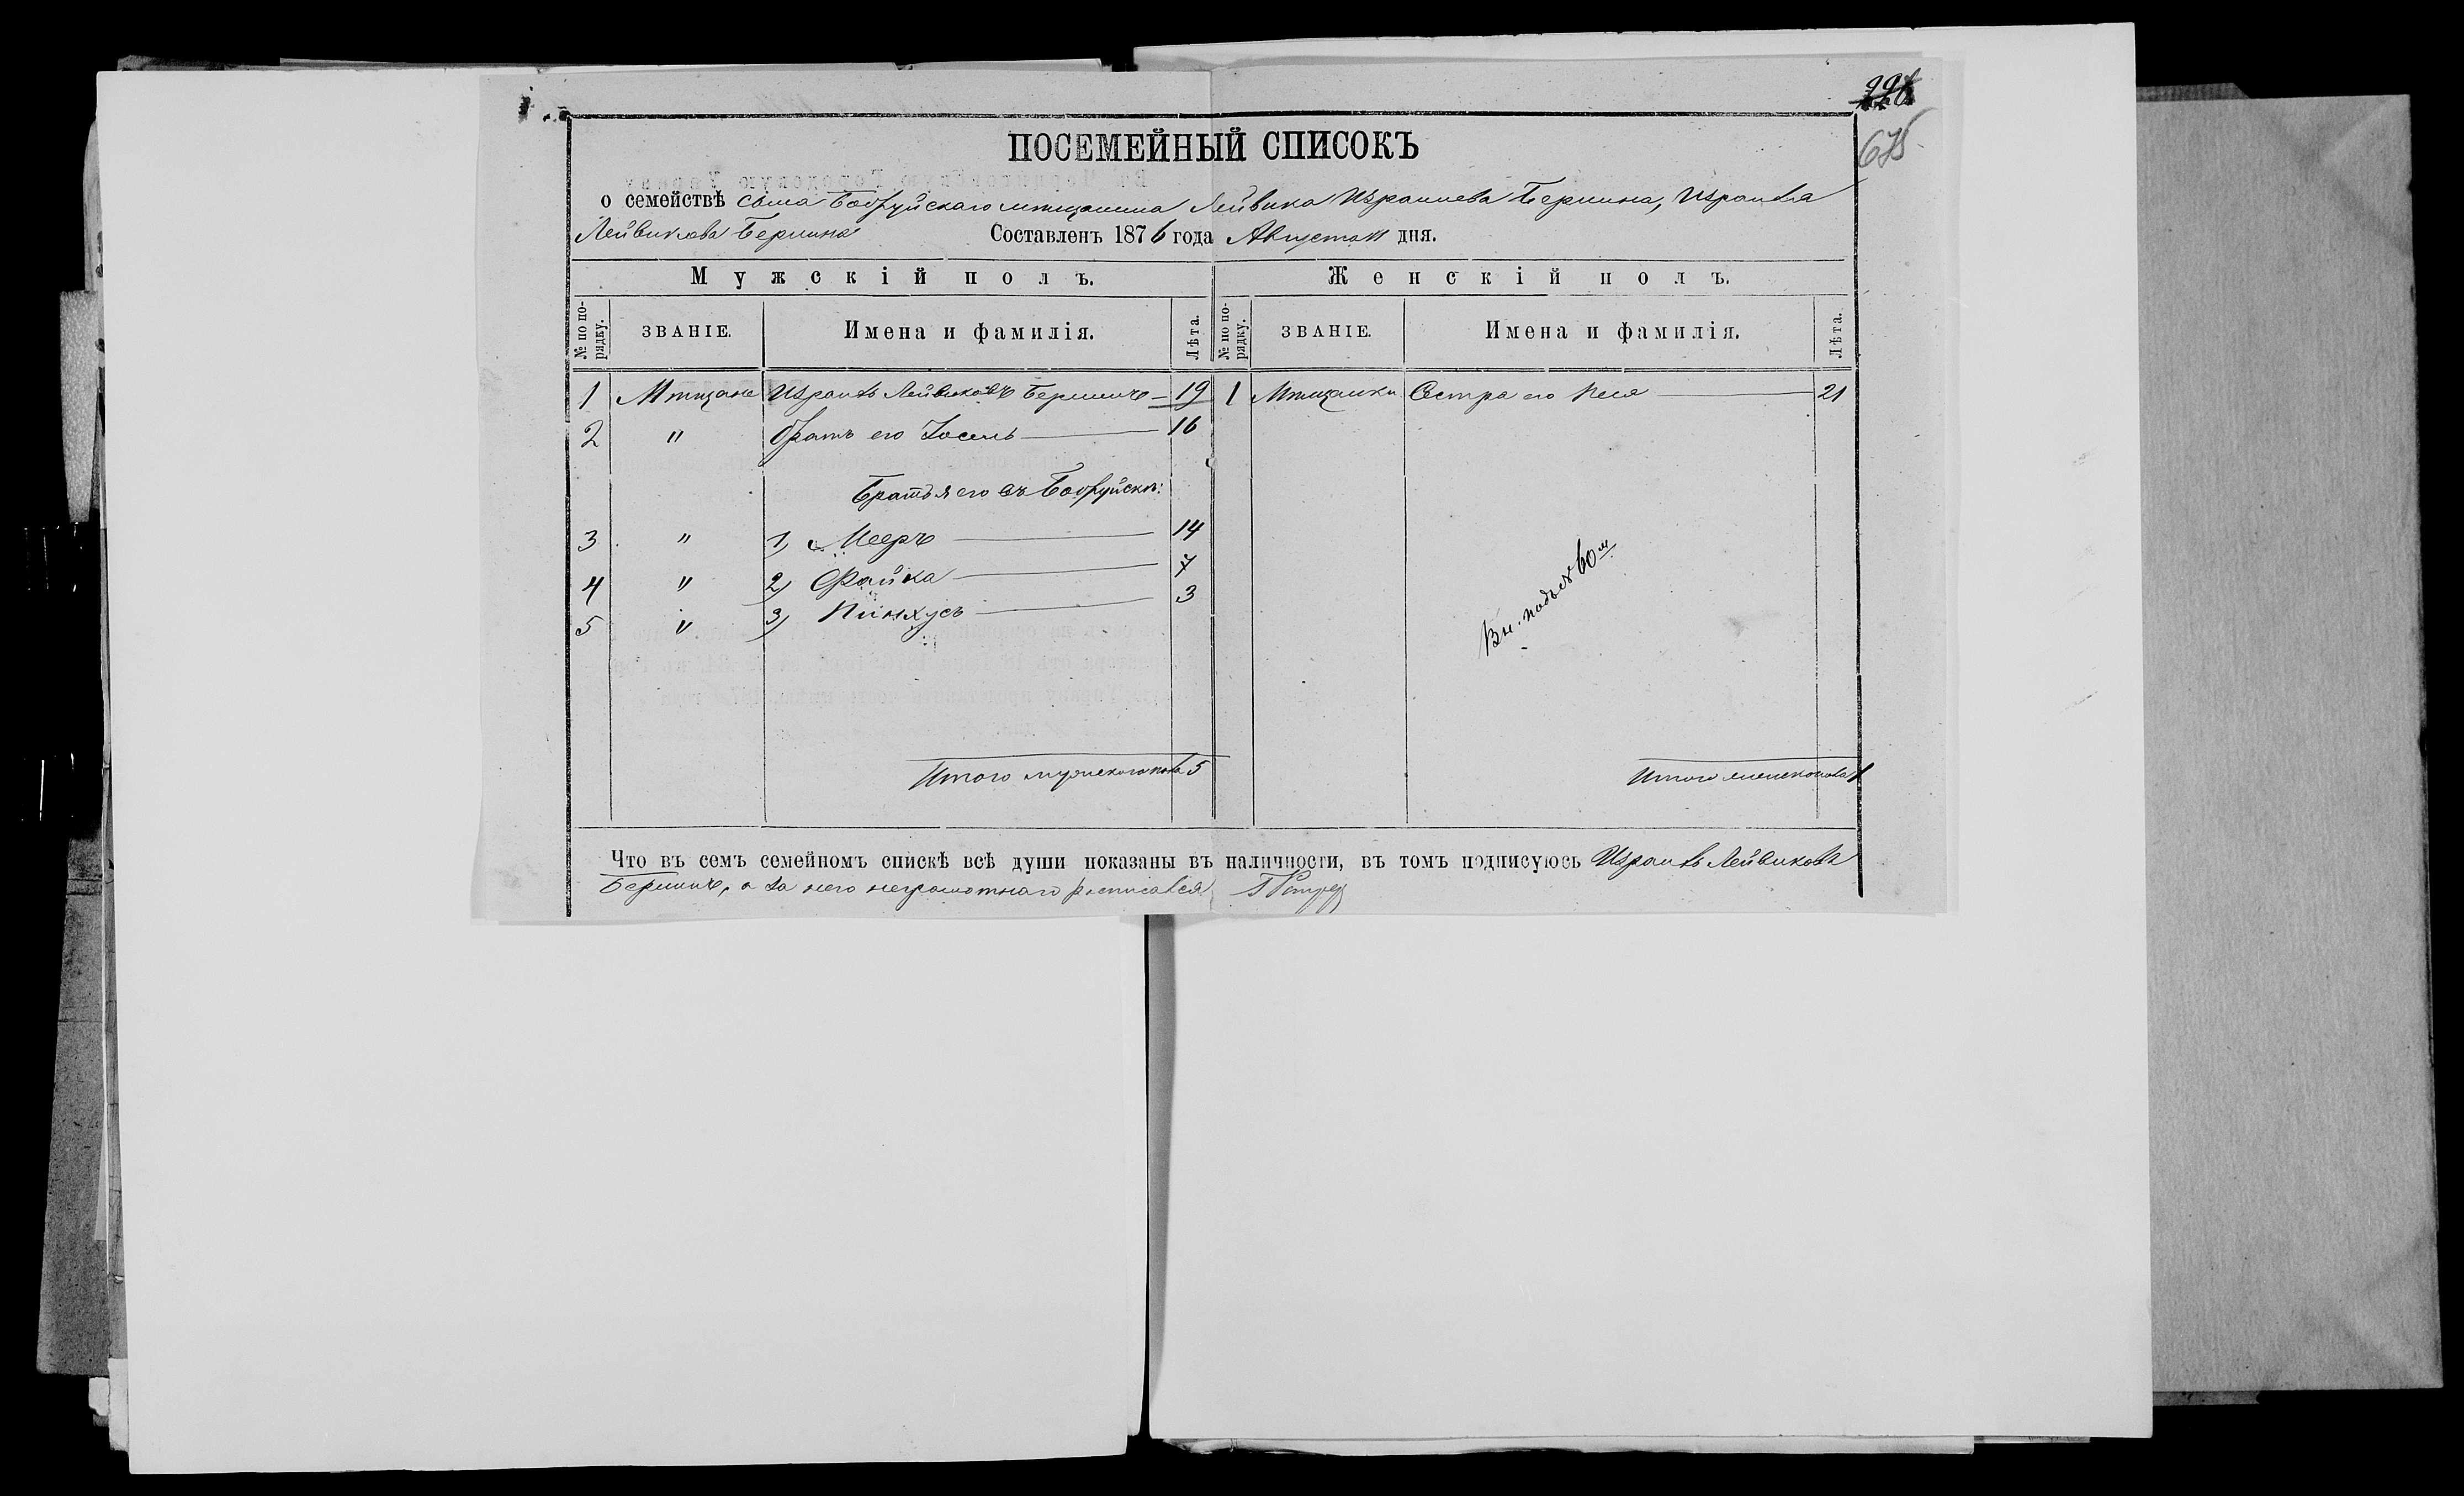 675
ПОСЕМЕЙНЫЙ СПИСОКЪ
о семействѣ сына Бобруйскаго мѣщанина Лейвика Израилева Берлина, Израиля
Лейвикова Берлина Составленъ 1876 года Августа 11 дня.
Мужскій полъ. Женскій полъ.
№ по порядку. ЗВАНІЕ. Имена и фамилія. Лѣта. № по порядку. ЗВАНІЕ. Имена и фамилія. Лѣта.
1 Мѣщане Израиль Лейвиковъ Берлинъ 19 1 Мѣщанки Сестра его Песя 21
2 " Братъ его Іосель 16
Братья его въ Бобруйскѣ:
3 " 1) Мееръ 14
4 " 2) Файка 7
5 " 3) Пинхусъ 3
Вн. подъ № 60 м
Итого мужескаго пола 5 Итого женск. пола 1
Что въ семъ семейномъ спискѣ всѣ души показаны въ наличности, въ томъ подписуюсь Израиль Лейвиковъ
Берлинъ, а за него неграмотнаго росписался